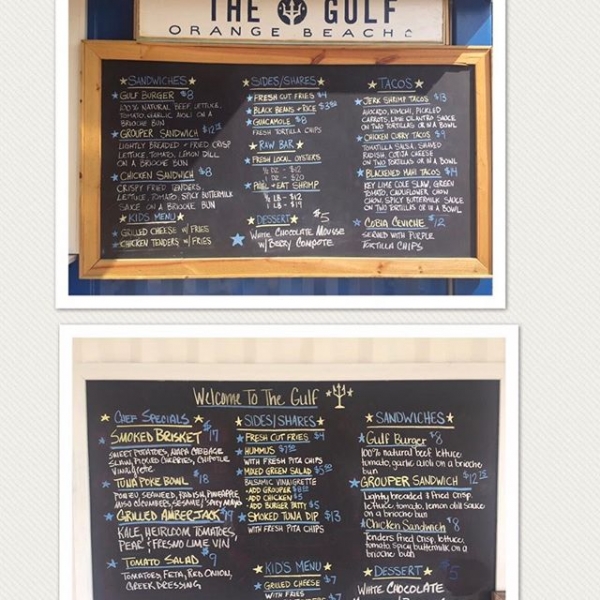 THE GULF
ORANGE BEACH
SANDWICHES
GULF BURGER $8
100% NATURAL BEEF, LETTUCE,
TOMATO, GARLIC AIOLI ON A
BRIOCHE BUN
GROUPER SANDWICH $12
LIGHTLY BREADED + FRIED CRISP
LETTUCE, TOMATO, LEMON DILL
ON A BRIOCHE BUN
CHICKEN SANDWICH $8
CRISPY FRIED TENDERS,
LETTUCE, TOMATO, SPICY BUTTERMILK
SAUCE ON A BRIOCHE BUN
KIDS MENU
GRILLED CHEESE W/ FRIES
CHICKEN TENDERS W/ FRIES
SIDES/SHARES
FRESH CUT FRIES $4
BLACK BEANS + RICE $3.50
GUACAMOLE $8
FRESH TORTILLA CHIPS
RAW BAR
FRESH LOCAL OYSTERS
1/2 DZ - $12
1 DZ - $20
PEEL + EAT SHRIMP
1/2 LB - $12
1 LB - $19
DESSERT $5
WHITE CHOCOLATE MOUSSE
W/ BERRY COMPOTE
TACOS
JERK SHRIMP TACOS $13
AVOCADO, KIMCHI, PICKLED
CARROTS, LIME CILANTRO SAUCE
ON TWO TORTILLAS OR IN A BOWL
CHICKEN CURRY TACOS $9
TOMATILLA SALSA, SHAVED
RADISH, COTIJA CHEESE
ON TWO TORTILLAS OR IN A BOWL
BLACKENED MAHI TACOS $14
KEY LIME COLE SLAW, GREEN
TOMATO, CAULIFLOWER CHOW
CHOW, SPICY BUTTERMILK SAUCE
ON TWO TORTILLAS OR IN A BOWL
COBIA CEVICHE $12
SERVED WITH PURPLE
TORTILLA CHIPS
Welcome To The Gulf
CHEF SPECIALS
SMOKED BRISKET $17
SWEET POTATOES, NAPA CABBAGE
SLAW, PICKLED CHERRIES, CHIPOTLE
VINAIGRETTE
TUNA POKE BOWL $18
SEAWEED, RADISH, PINEAPPLE,
MISO CUCUMBERS, SESAME / SPICY MAYO
GRILLED AMBERJACK $19
KALE, HEIRLOOM TOMATOES,
PEAR + FRESNO LIME VIN
TOMATO SALAD $9
TOMATOES, FETA, RED ONION,
GREEK DRESSING
SIDES/SHARES
FRESH CUT FRIES $4
HUMMUS
WITH FRESH PITA CHIPS
MIXED GREEN SALAD
BALSAMIC VINAIGRETTE
-ADD GROUPER $8
-ADD CHICKEN $5
-ADD BURGER PATTY $5
SMOKED TUNA DIP $13
WITH FRESH PITA CHIPS
KID'S MENU
GRILLED CHEESE $7
WITH FRIES
SANDWICHES
Gulf Burger $8
100% natural beef lettuce
tomato, garlic aioli on a brioche
bun
GROUPER SANDWICH $12
Lightly breaded & Fried Crisp
lettuce, tomato, lemon dill sauce
on a brioche bun
Chicken Sandwich $8
Tenders Fried Crisp, lettuce,
tomato Spicy buttermilk on a
brioche bun
DESSERT $5
WHITE CHOCOLATE